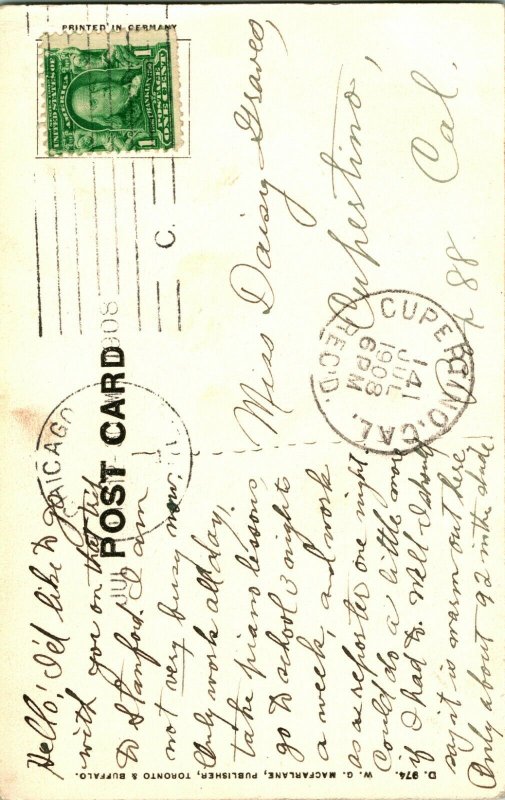 PRINTED IN GERMANY
UNITED STATES OF AMERICA
1 ONE CENT 1
C.
CHICAGO
JUL
1908
POST CARD
CUPERTINO, CAL.
JUL
14
1908
6 PM
REC'D.
Miss Daisy Graves,
Cupertino,
88 Cal.
Hello! I'd like to go
with you on that trip
to Stanford. I am
not very busy now.
Only work all day,
take piano lessons,
go to school 3 night
a week, and work
as a reporter one night.
Could do a little more
if I had to. Well I should
say it is warm out here
Only about 92 in the shade.
D. 974. W. G. MACFARLANE, PUBLISHER, TORONTO & BUFFALO.